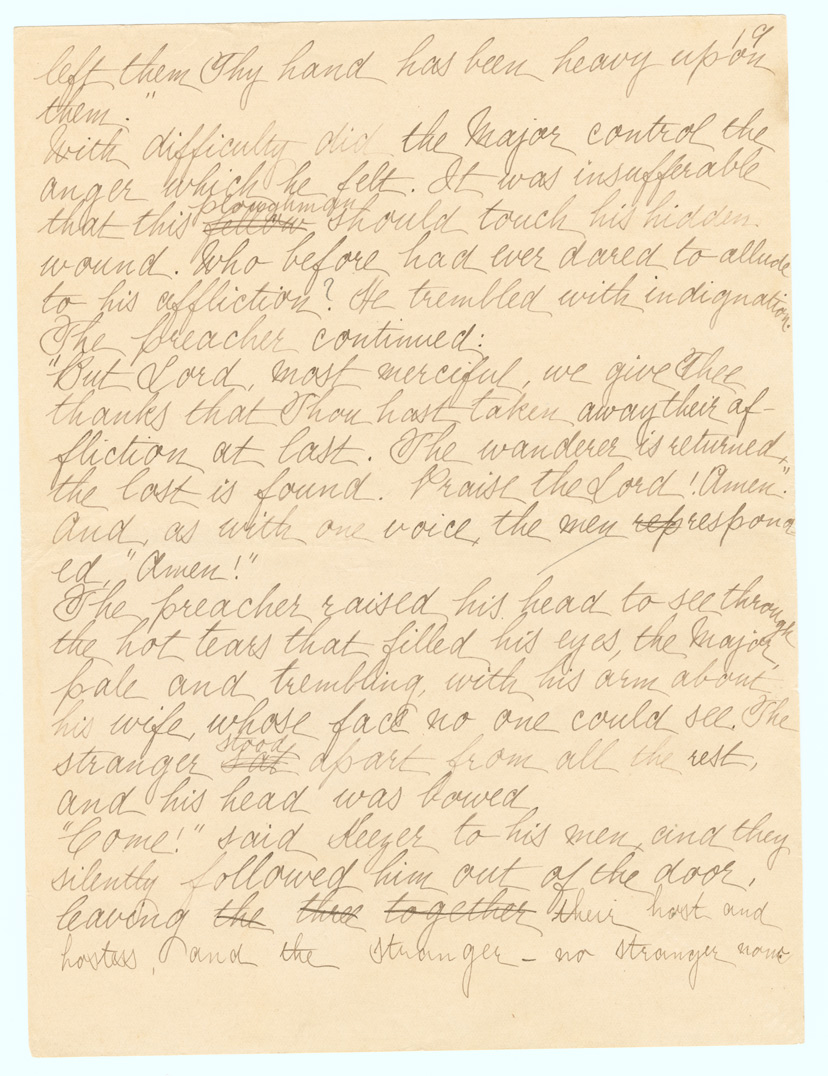 19
left them Thy hand has been heavy upon
them."
With difficulty did the Major control the
anger which he felt. It was insufferable
ploughman
that this fellow should touch his hidden
wound. Who before had ever dared to allude
to his affliction? He trembled with indignation.
The preacher continued:
"But Lord, most merciful, we give Thee
thanks that Thou hast taken away their af-
fliction at last. The wanderer is returned,
the lost is found. Praise the Lord! Amen."
And, as with one voice, the men rep respond
ed, "Amen!"
The preacher raised his head to see through
the hot tears that filled his eyes, the Major,
pale and trembling, with his arm about
his wife, whose face no one could see. The
stood
stranger sat apart from all the rest,
and his head was bowed
"Come!" said Keezer to his men, and they
silently followed him out of the door,
leaving the three together their host and
hostess, and the stranger - no stranger now